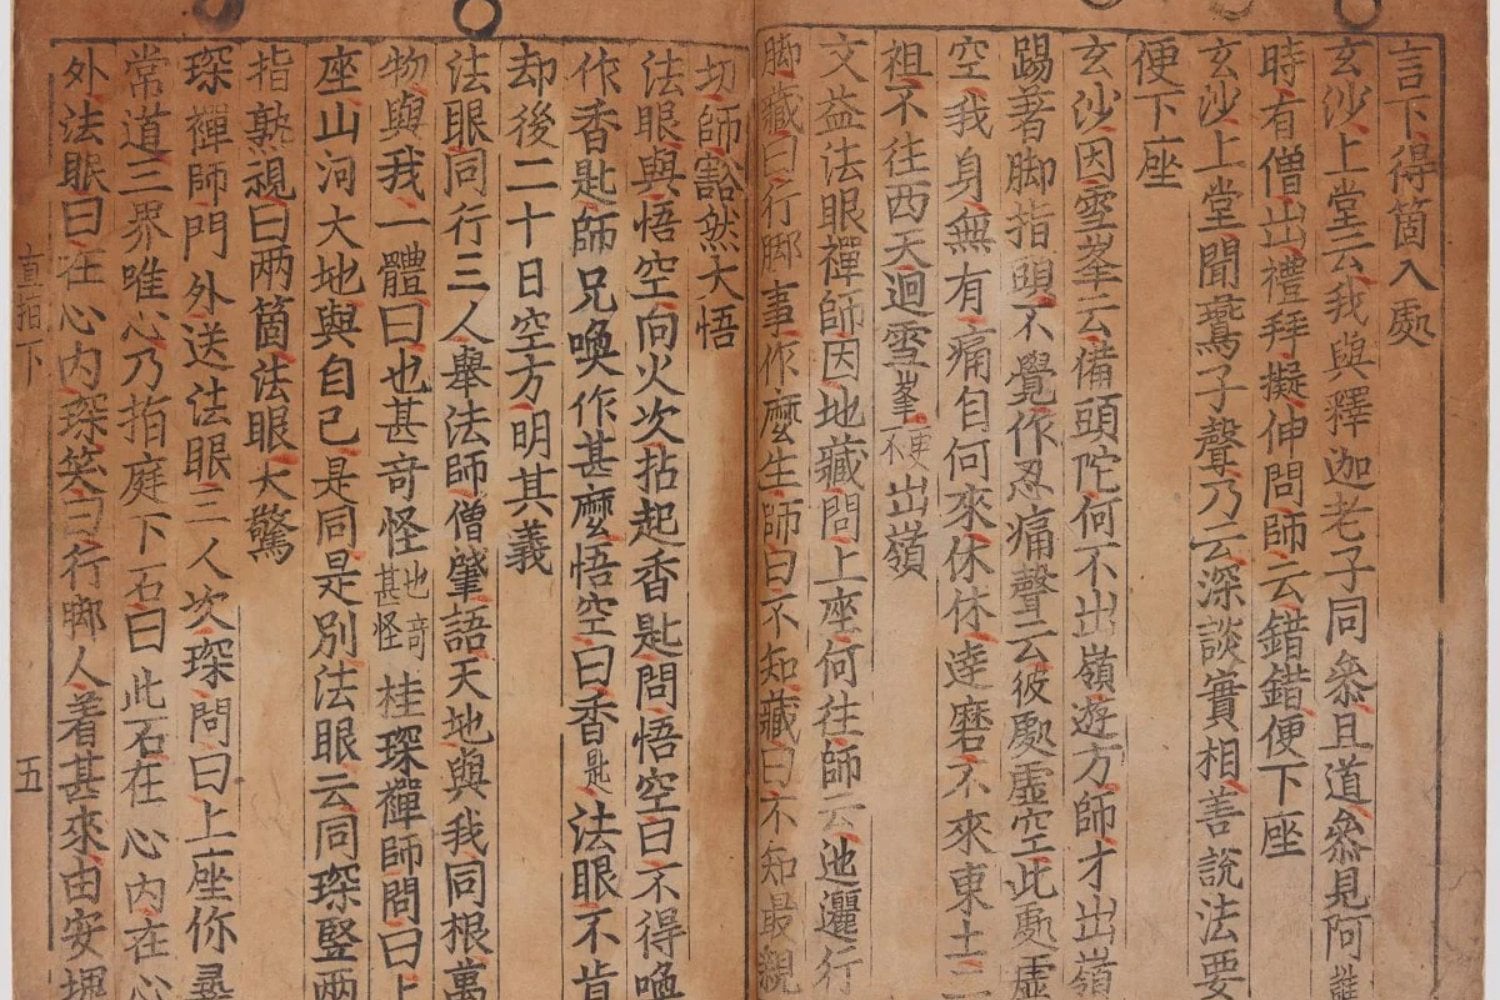 言下得箇入處
玄沙上堂云我與釋迦老子同叅且道叅見阿誰
時有僧出禮拜擬伸問師云錯錯便下座
玄沙上堂聞鷰子聲乃云深談實相善說法要
便下座
玄沙因雪峯云備頭陀何不出嶺遊方師才出嶺
踢著脚指頭不覺作忍痛聲云彼處虛空此處虛
空我身無有痛自何來休休達磨不來東土二
祖不往西天迴雪峯更不出嶺
文益法眼禪師因地藏問上座何往師云迤邐行
脚藏曰行脚事作麽生師曰不知藏曰不知最親
切師豁然大悟
法眼與悟空向火次拈起香匙問悟空曰不得喚
作香匙師兄喚作甚麽悟空曰香匙法眼不肯
却後二十日空方明其義
法眼同行三人舉法師僧肇語天地與我同根萬
物與我一體曰也甚奇怪也奇甚怪桂琛禪師問曰上
座山河大地與自己是同是別法眼云同琛竪兩
指熟視曰两箇法眼大驚
琛禪師門外送法眼三人次琛問曰上座你尋
常道三界唯心乃指庭下石曰此石在心內在心
外法眼曰在心內琛笑曰行脚人着甚來由安
直指下
五